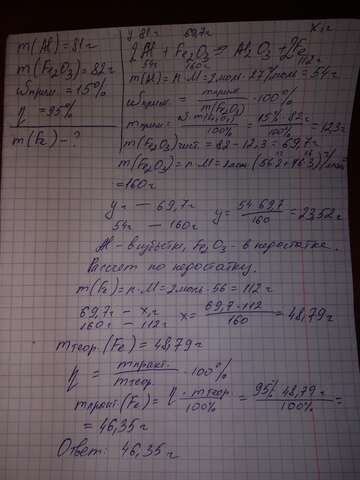 m(Al)=81г
m(Fe₂O₃)=82г
ω прим. = 15%
η = 95%
m(Fe) - ?
y г 81г 69,7г x, г
2Al + Fe₂O₃ = Al₂O₃ + 2Fe
54г 160г 112г
m(Al) = n·M = 2моль·27г/моль = 54г
ω прим. = m прим / m(Fe₂O₃) · 100%
m прим. = ω·m(Fe₂O₃) / 100% = 15%·82г / 100% = 12,3г
m(Fe₂O₃)чист. = 82 - 12,3 = 69,7г
m(Fe₂O₃) = n·M = 1моль(56·2+16·3)г/моль
= 160г
y г — 69,7г y = 54·69,7 / 160 = 23,52г
54г — 160г
Al - в избытке, Fe₂O₃ - в недостатке.
Рассчет по недостатку.
m(Fe) = n·M = 2моль·56 = 112г
69,7г - x, г x = 69,7·112 / 160 = 48,79г
160г — 112г
m теор. (Fe) = 48,79г
η = m практ. / m теор. · 100%
m практ. (Fe) = η·m теор. / 100% = 95%·48,79г / 100% =
= 46,35г
Ответ: 46,35г